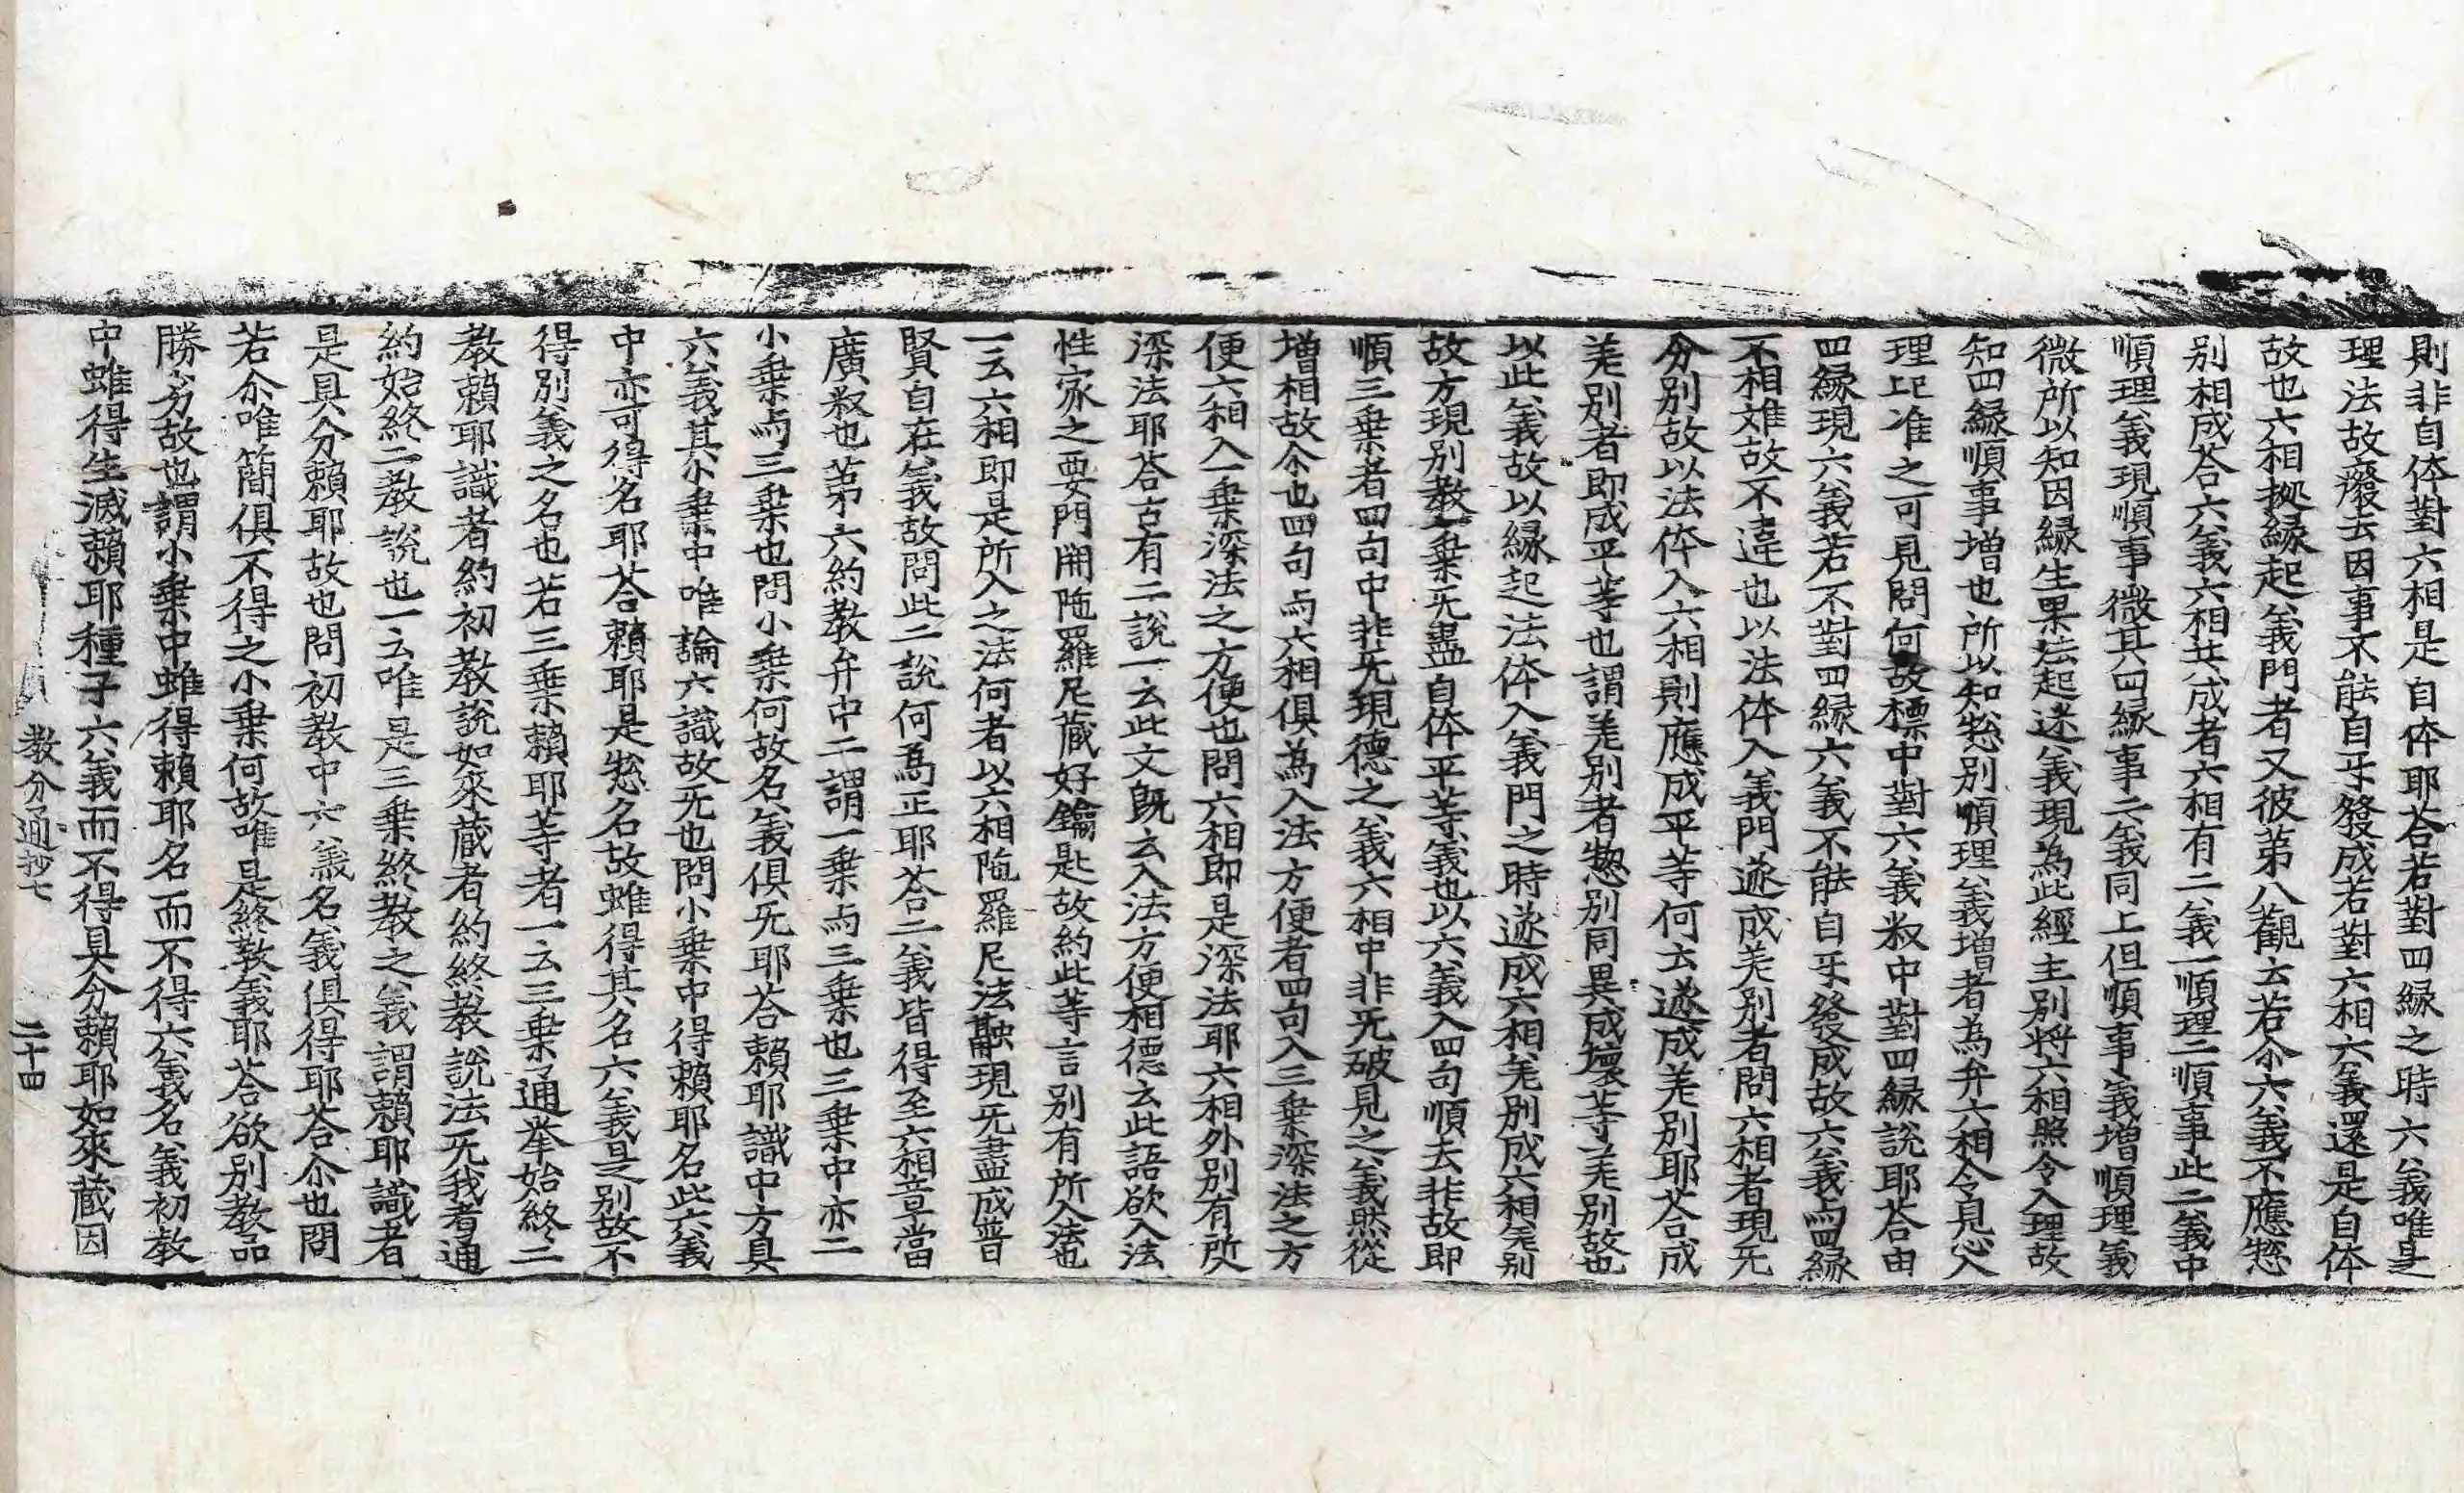 則非自体對六相是自体耶荅若對四縁之時六義唯是
理法故廢去因事不能自牙發成若對六相六義還是自体
故也六相擬縁起義門者又彼第八觀云若尒六義不應惣
别相成荅六義六相共成者六相有二義一順理二順事此二義中
順理義現順事微其四縁事二義同上但順事義增順理義
微所以知因縁生果法起迷義現為此經主别将六相照令入理故
知四縁順事增也所以知惣别順理義增者為弁六相令見心入
理記准之可見問何故標中對六義叙中對四縁說耶荅由
四縁現六義若不對四縁六義不能自牙發成故六義与四縁
不相雜故不違也以法体入義門遂成差别者問六相者現旡
分别故以法体入六相則應成平等何云遂成差别耶荅成
差别者即成平等也謂差别者惣别同異成壞等差别故也
以此義故以縁起法体入義門之時遂成六相差别成六相差别
故方現别教一乗旡盡自体平等義也以六義入四句順去非故即
順三乗者四句中非旡現德之義六相中非旡破見之義然從
增相故尒也四句与六相俱為入法方便者四句入三乗深法之方
便六相入一乗深法之方便也問六相即是深法耶六相外别有所
深法耶荅古有二說一云此文旣云入法方便相德云此語欲入法
性家之要門開陁羅尼藏好鑰匙故約此等言别有所入法也
一云六相即是所入之法何者以六相陁羅尼法融現旡盡成普
賢自在義故問此二說何為正耶荅二義皆得至六相章當
廣叙也第六約教弁中二謂一乗与三乗也三乗中亦二
小乗与三乗也問小乗何故名義俱旡耶荅賴耶識中方具
六義其小乗中唯論六識故旡也問小乗中得賴耶名此六義
中亦可得名耶荅賴耶是惣名故雖得其名六義是别故不
得别義之名也若三乗賴耶等者一云三乗通举始終二
教賴耶識者約初教說如來蔵者約終教說法旡我者通
約始終二教說也一云唯是三乗終教之義謂賴耶識者
是具分賴耶故也問初教中六義名義俱得耶荅尒也問
若尒唯簡俱不得之小乗何故唯是終教義耶荅欲别教品
勝劣故也謂小乗中雖得賴耶名而不得六義名義初教
中雖得生滅賴耶種子六義而不得具分賴耶如來蔵因
教分通抄七　二十四